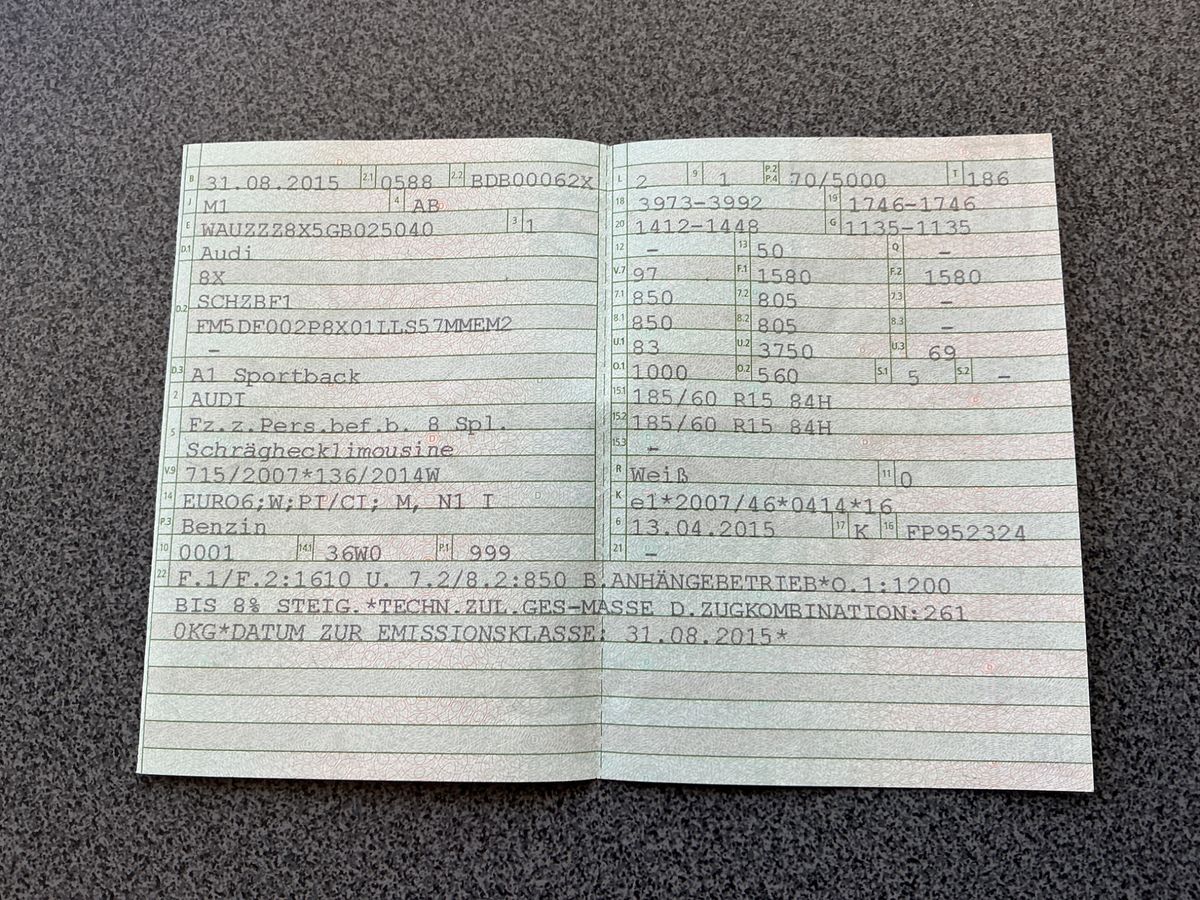 B 31.08.2015 2.1 0588 2.2 BDB00062X
J M1 4 AB
E WAUZZZ8X5GB025040 3 1
D.1 Audi
8X
D.2 SCHZBF1
FM5DF002P8X01LLS57MMEM2
–
D.3 A1 Sportback
2 AUDI
5 Fz.z.Pers.bef.b. 8 Spl.
Schräghecklimousine
V.9 715/2007*136/2014W
14 EURO6;W;PI/CI; M, N1 I
P.3 Benzin
10 0001 14.1 36W0 P.1 999
L 2 9 1 P.2 P.4 70/5000 T 186
18 3973-3992 19 1746-1746
20 1412-1448 G 1135-1135
12 – 13 50 Q –
V.7 97 F.1 1580 F.2 1580
7.1 850 7.2 805 7.3 –
8.1 850 8.2 805 8.3 –
U.1 83 U.2 3750 U.3 69
O.1 1000 O.2 560 S.1 5 S.2 –
15.1 185/60 R15 84H
15.2 185/60 R15 84H
15.3 –
R Weiß 11 0
K e1*2007/46*0414*16
6 13.04.2015 17 K 16 FP952324
21 –
22 F.1/F.2:1610 U. 7.2/8.2:850 B.ANHÄNGEBETRIEB*O.1:1200
BIS 8% STEIG.*TECHN.ZUL.GES-MASSE D.ZUGKOMBINATION:261
0KG*DATUM ZUR EMISSIONSKLASSE: 31.08.2015*